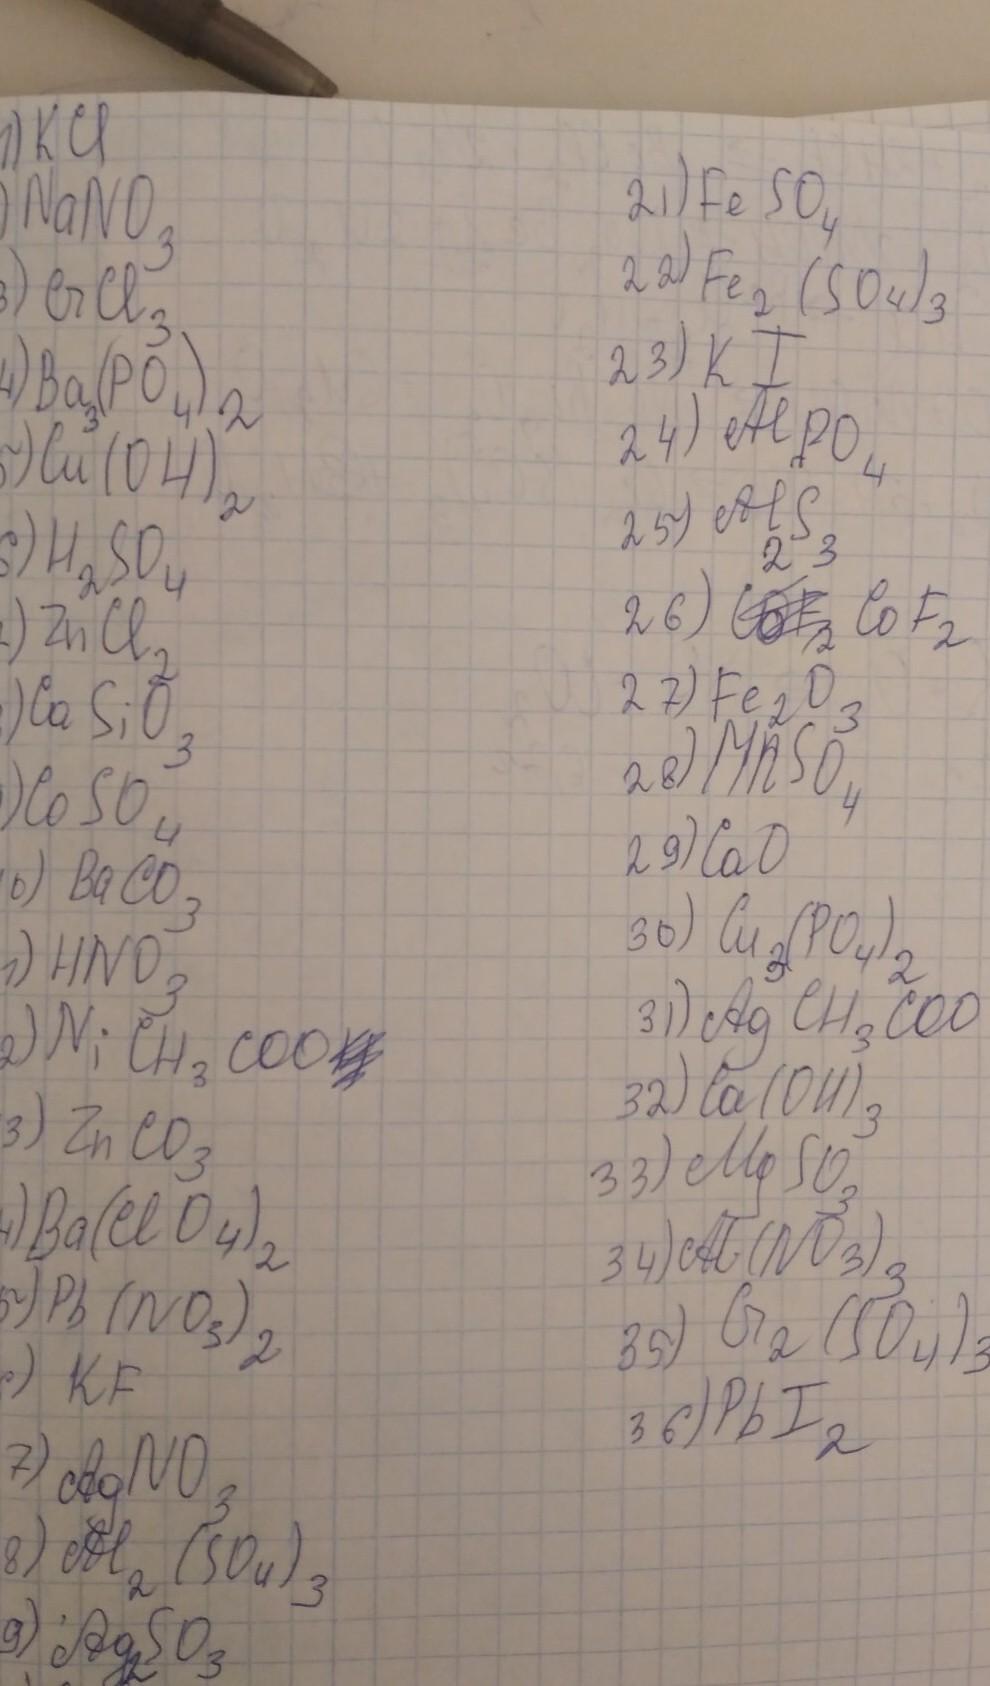 1) KCl
) NaNO3
3) CrCl3
4) Ba3(PO4)2
5) Cu(OH)2
6) H2SO4
) ZnCl2
) CaSiO3
) CoSO4
10) BaCO3
1) HNO3
2) NiCH3COO
3) ZnCO3
4) Ba(ClO4)2
5) Pb(NO3)2
) KF
7) AgNO3
8) Al2(SO4)3
9) Ag2SO3
21) FeSO4
22) Fe2(SO4)3
23) KI
24) AlPO4
25) Al2S3
26) CoF2
27) Fe2O3
28) MnSO4
29) CaO
30) Cu3(PO4)2
31) AgCH3COO
32) Ca(OH)3
33) MgSO3
34) Al(NO3)3
35) Cr2(SO4)3
36) PbI2